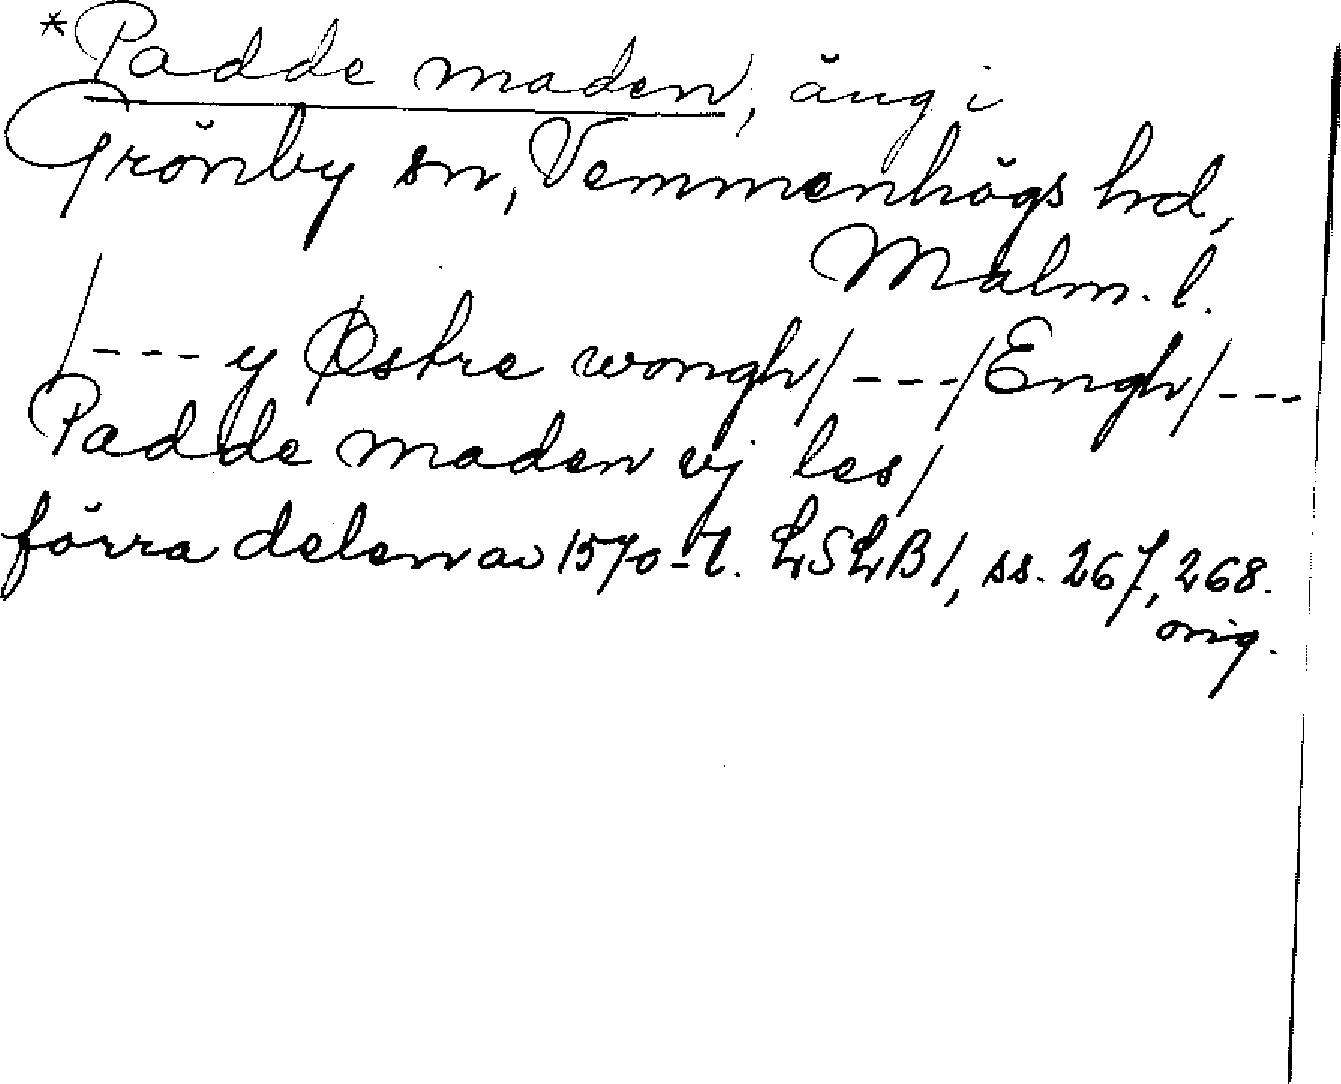 *Padde maden, äng i
Grönby sn, Vemmenhögs hd,
Malm. l.
/--- y Østre wongh/---/Engh/---
Padde maden vj les/
förra delen av 1570-t. LSLB1, ss. 267, 268.
orig.